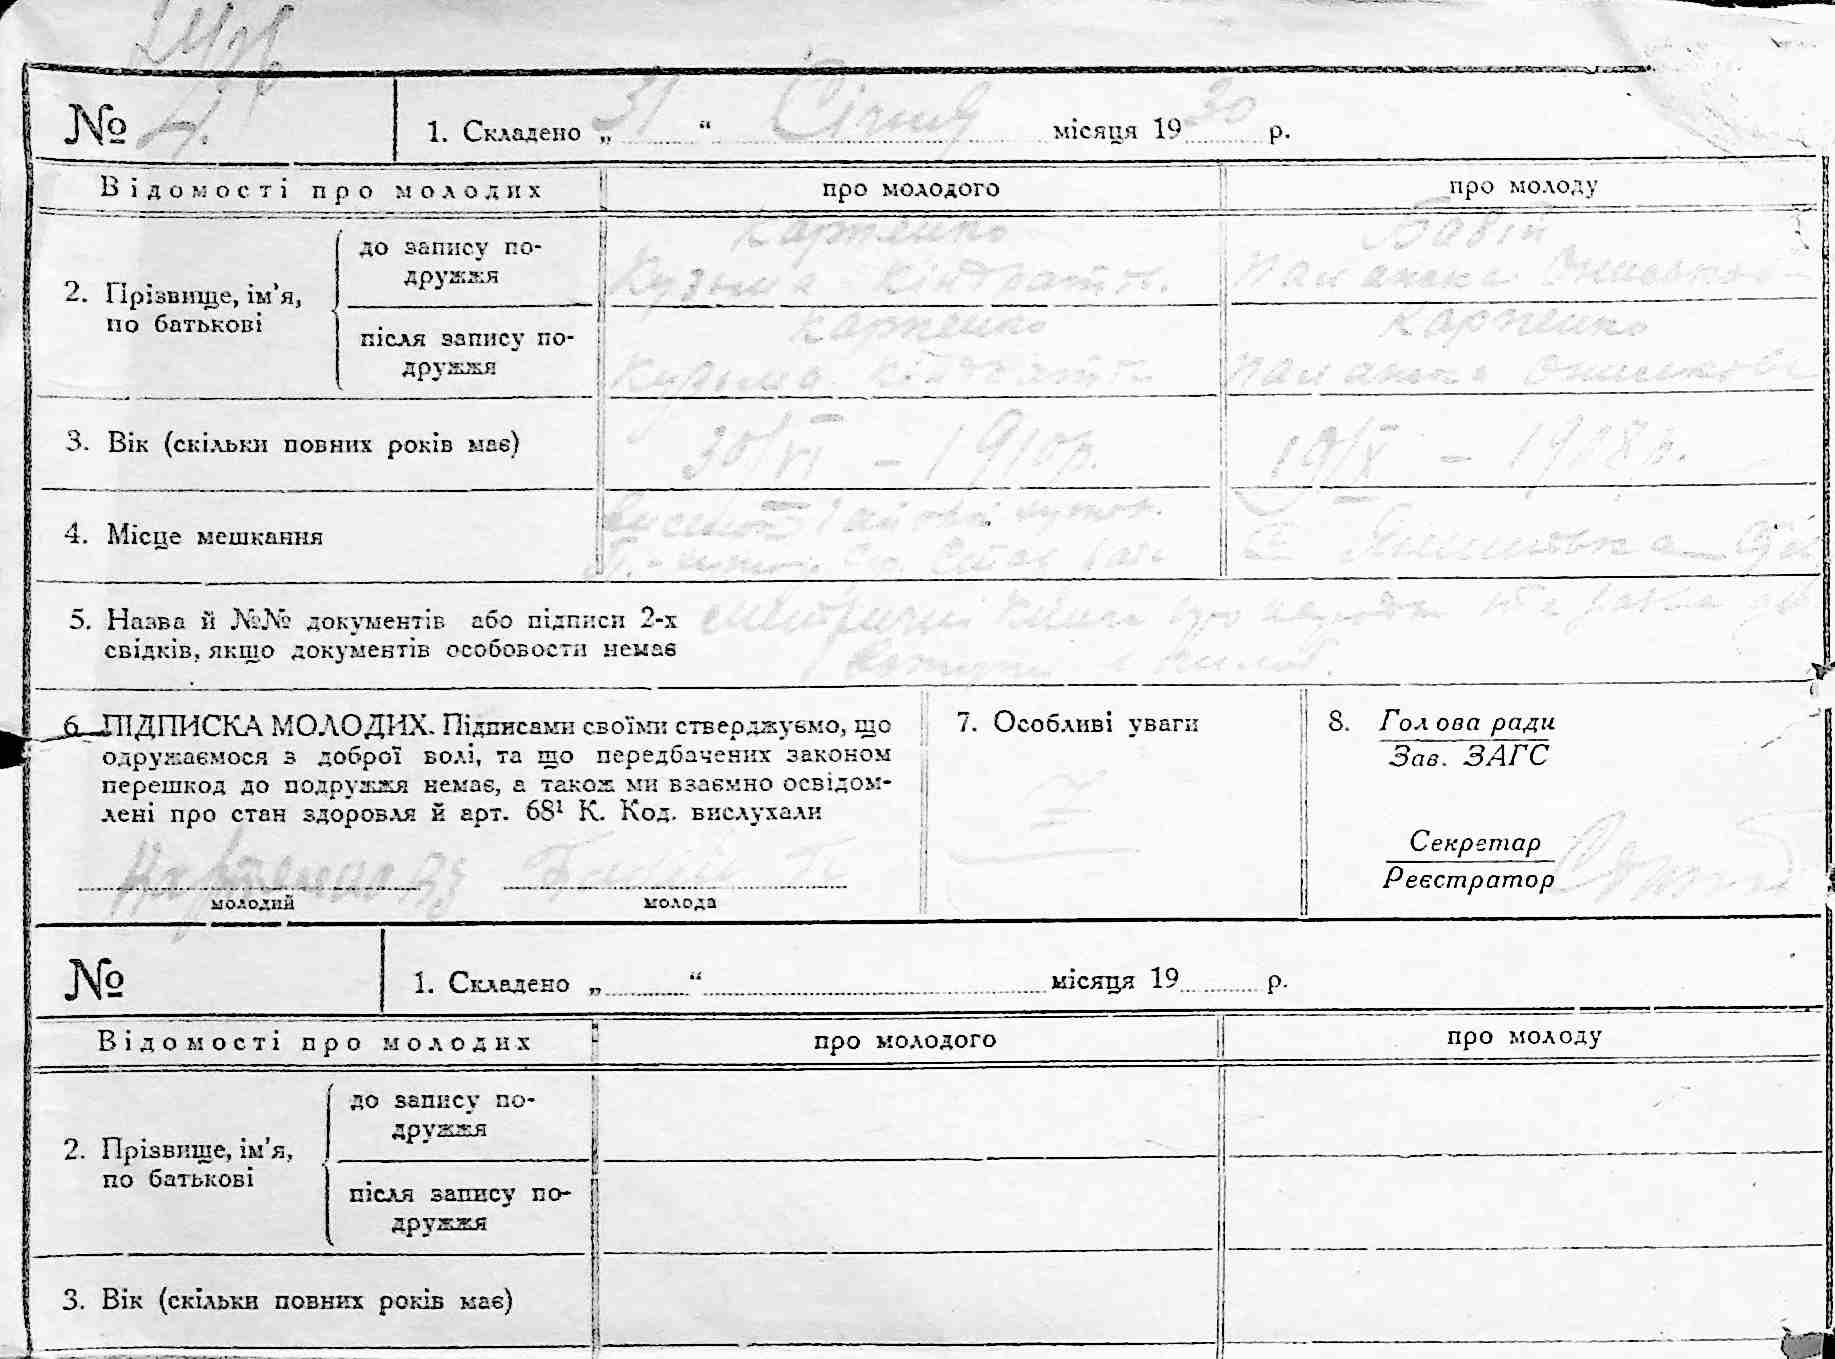 № 4. 1. Складено „ 31 “ Січня місяця 19 30 р.
Відомості про молодих про молодого про молоду
2. Прізвище, ім’я, по батькові
до запису по-
дружжя
Карпенко
Кузьма Кіндратів.
Бабій
після запису по-
дружжя
Карпенко
Кузьма Кіндратів
Карпенко
3. Вік (скільки повних років має) 30/VI – 1910р. 19/X – 1908р.
4. Місце мешкання
5. Назва й №№ документів або підписи 2-х
свідків, якщо документів особовости немає
6. ПІДПИСКА МОЛОДИХ. Підписами своїми стверджуємо, що
одружаємося з доброї волі, та що передбачених законом
перешкод до подружжя немає, а також ми взаємно освідом-
лені про стан здоровля й арт. 68¹ К. Код. вислухали
Карпенко
молодий молода
7. Особливі уваги
8. Голова ради
Зав. ЗАГС
Секретар
Реєстратор
№ 1. Складено „ “ місяця 19 р.
Відомості про молодих про молодого про молоду
2. Прізвище, ім’я,
по батькові
до запису по-
дружжя
після запису по-
дружжя
3. Вік (скільки повних років має)